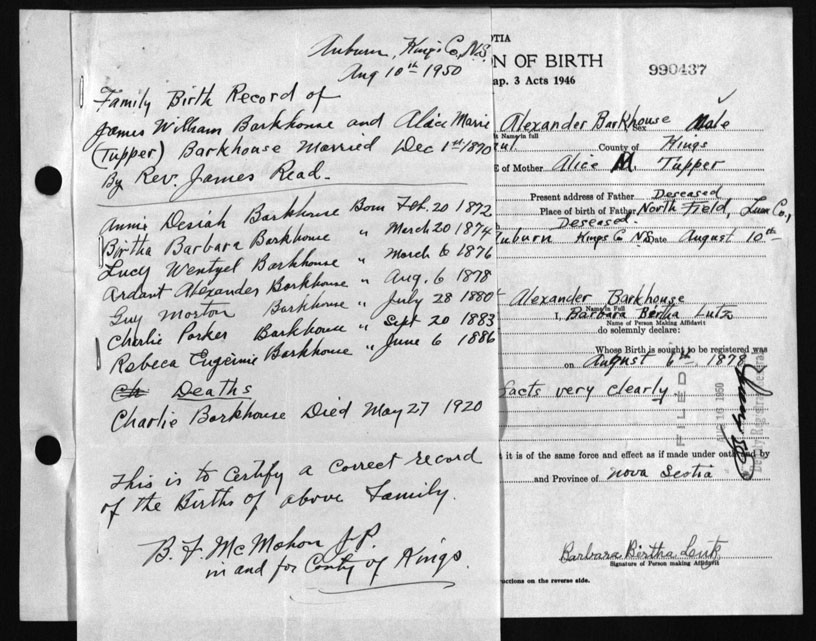 Auburn, Kings Co., N.S.
Aug 10th 1950
Family Birth Record of
James William Barkhouse and Alice Marie
(Tupper) Barkhouse Married Dec 1st 1870
By Rev. James Read.
Annie Desiah Barkhouse Born Feb. 20 1872
Birtha Barbara Barkhouse " March 20 1874
Lucy Wentzel Barkhouse " March 6 1876
Ardant Alexander Barkhouse " Aug. 6 1878
Guy Morton Barkhouse " July 28 1880
Charlie Parker Barkhouse " Sept 20 1883
Rebeca Eugenie Barkhouse " June 6 1886
Ch Deaths
Charlie Barkhouse Died May 27 1920
This is to Certify a Correct record
of the Births of above Family.
B. F. McMahon J.P.
in and for County of Kings.
OTIA
ON OF BIRTH
ap. 3 Acts 1946
990437
Alexander Barkhouse Sex Male
Name in full
County of Kings
E of Mother Alice M. Tupper
Present address of Father Deceased
Place of birth of Father North Field, Lun Co.,
Deceased
Auburn Kings Co NS Date August 10th
Alexander Barkhouse
Name in Full
I, Barbara Bertha Lutz
Name of Person Making Affidavit
do solemnly declare:
Whose Birth is sought to be registered was
on August 6th 1878
facts very clearly.
FILED
1950
Deputy Registrar General
it is of the same force and effect as if made under oath and by
and Province of Nova Scotia
Barbara Bertha Lutz
Signature of Person making Affidavit
ructions on the reverse side.